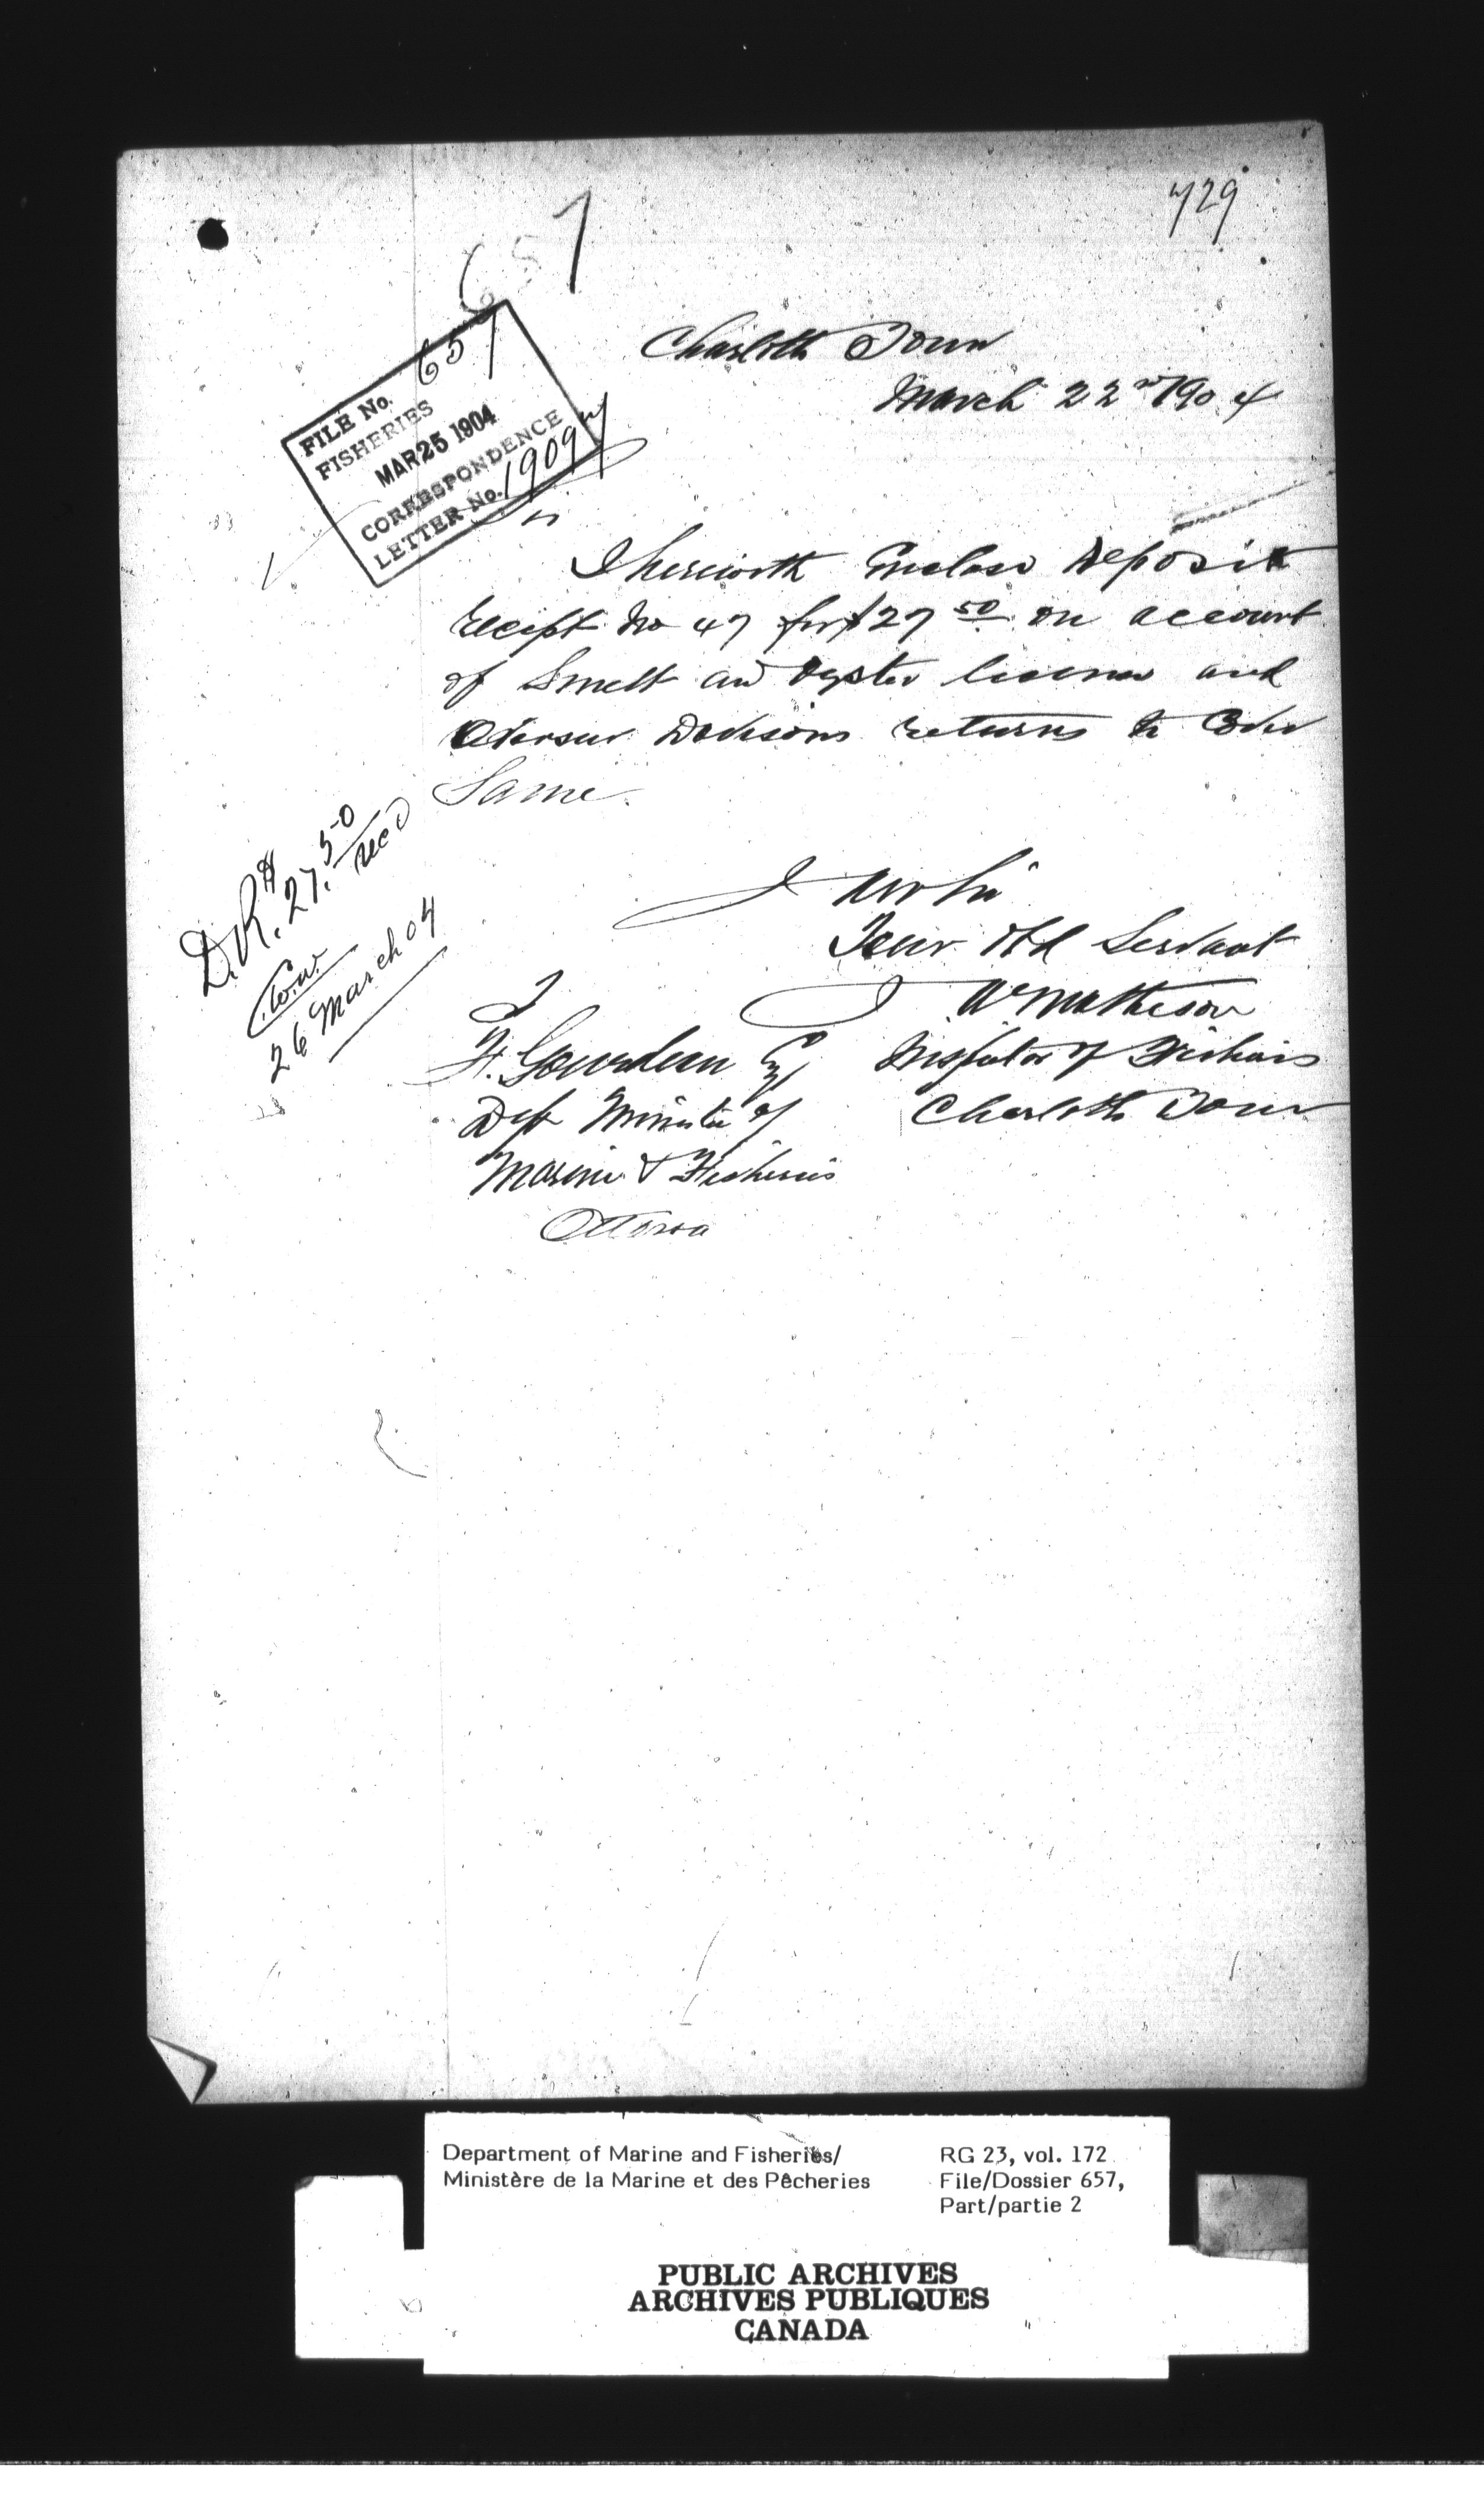 729
657
Charlotte Town
March 22nd 1904
FILE No. 657
FISHERIES
MAR 25 1904
CORRESPONDENCE
LETTER No. 19097
Sir
I herewith Enclose Deposit
receipt No 47 for $27 50 on account
of Smelt and Oyster licenses and
Overseer returns to Cover
Same.
D.R. $27.50 rec'd
26 March 04
I
Your Obd Servant
J A Matheson
Inspector of Fisheries
Charlotte Town
F. Gourdeau Esq
Dep Minister of
Marine & Fisheries
Ottawa
Department of Marine and Fisheries/
Ministère de la Marine et des Pêcheries
RG 23, vol. 172
File/Dossier 657,
Part/partie 2
PUBLIC ARCHIVES
ARCHIVES PUBLIQUES
CANADA